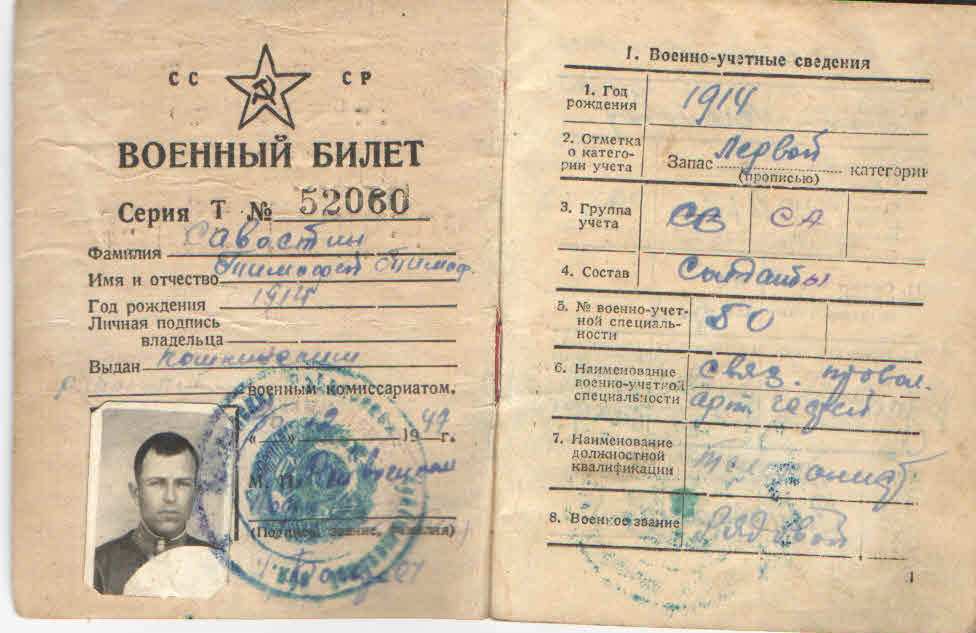 СС СР
ВОЕННЫЙ БИЛЕТ
Серия Т № 52060
Фамилия Савостин
Имя и отчество Тимофей Тимоф.
Год рождения 1914
Личная подпись
владельца
Выдан
военным комиссариатом.
19 49 г.
М. П.
(Подпись, звание, фамилия)
I. Военно-учетные сведения
1. Год
рождения
1914
2. Отметка
о катего-
рии учета
Запас Первой категории
(прописью)
3. Группа
учета
СВ СА
4. Состав Солдаты
5. № военно-учет-
ной специаль-
ности
50
6. Наименование
военно-учетной
специальности
связ. провол.
арт. частей
7. Наименование
должностной
квалификации
телефонист
8. Военное звание рядовой
1